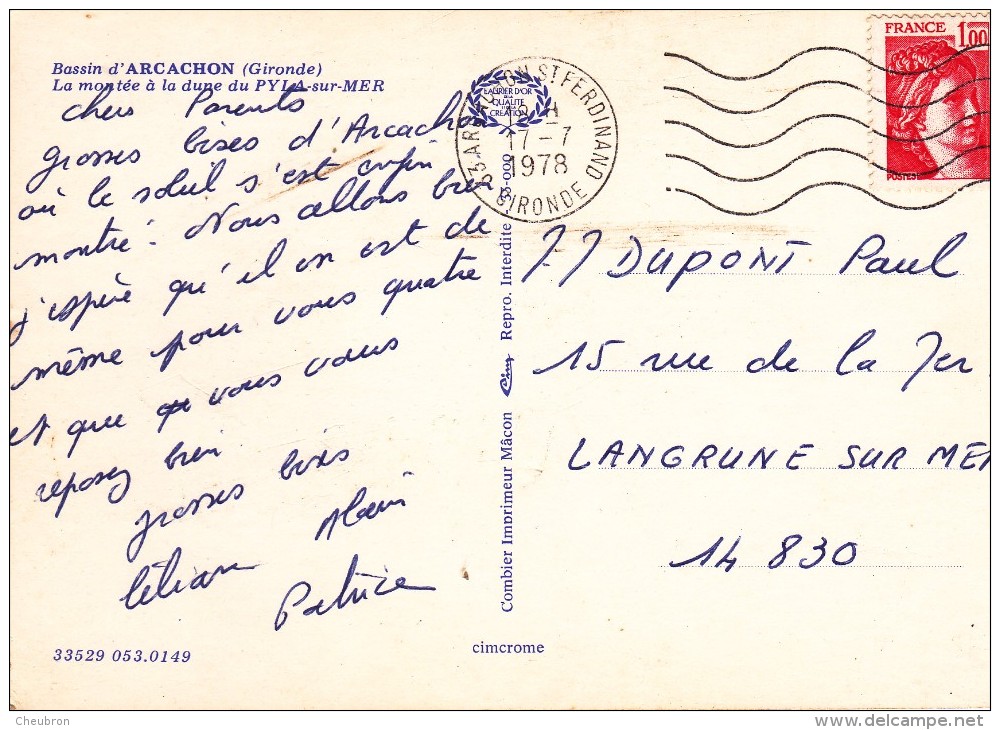 Bassin d'ARCACHON (Gironde)
La montée à la dune du PYLA-sur-MER
chers Parents
grosses bises d'Arcachon
où le soleil s'est enfin
montré. Nous allons bien
j'espère qu'il en est de
même pour vous quatre
et que vous vous
reposez bien
grosses bises
Alain
Liliane
Patrice
33529 053.0149
LAURIER D'OR
DE LA
QUALITÉ
CREATION
33 ARCACHON ST FERDINAND
17-7
1978
GIRONDE
FRANCE 1,00
POSTES
Combier Imprimeur Mâcon Cim Repro. Interdite
cimcrome
DUPONT Paul
15 rue de la Mer
LANGRUNE SUR MER
14 830
Cheubron
delcampe.net